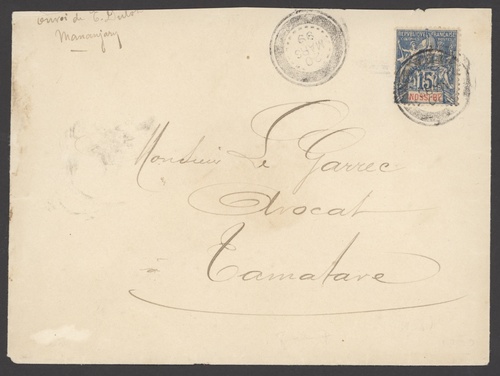 envoi de
Mananjary
MARS
99
REPUBLIQUE FRANÇAISE
15
NOSSI-BÉ
Monsieur Le Garrec
Avocat
Tamatave